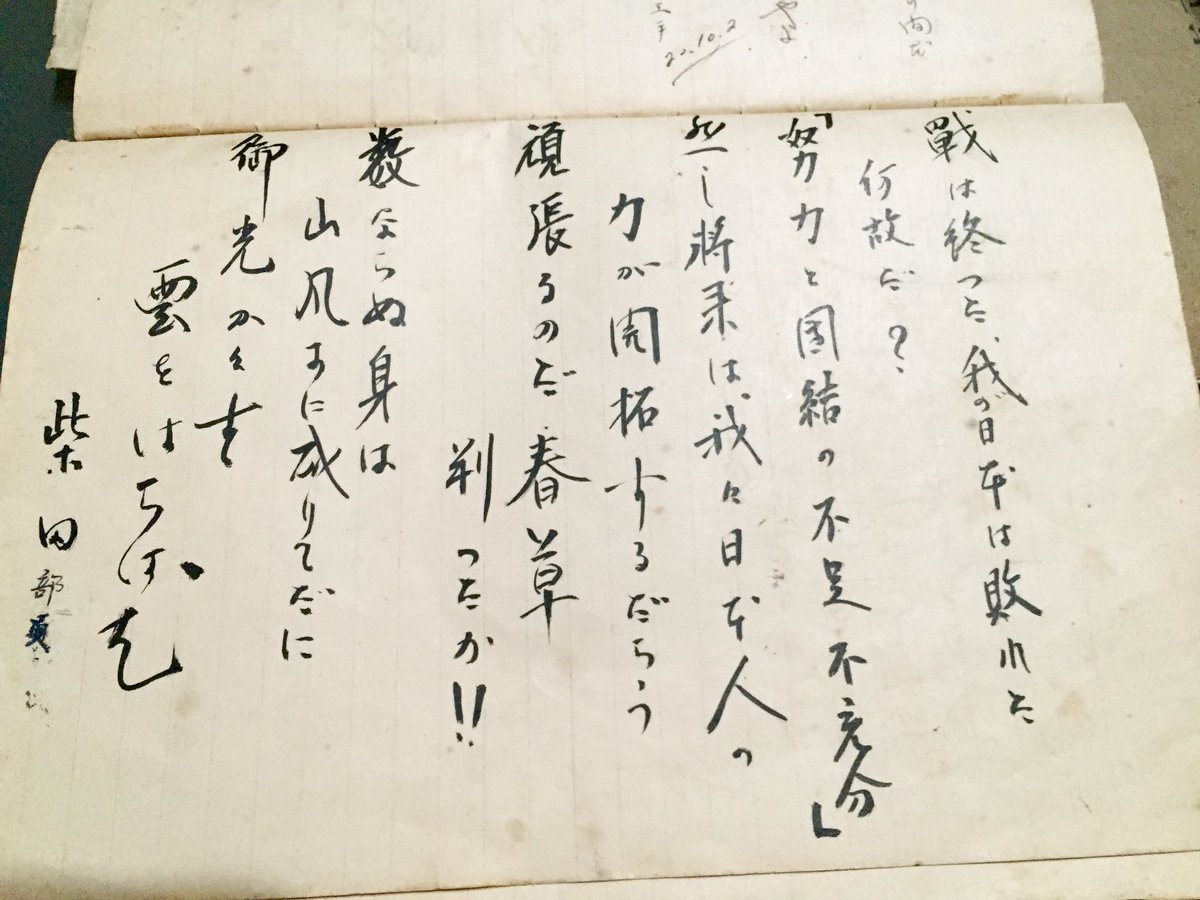 22.10.2
戰は終つた、我が日本は敗れた
何故だ?
「努力と團結の不足不充分」
然し將来は、我々日本人の
力が開拓するだらう
頑張るのだ春草
判つたか!!
数ならぬ身は
山風に成りてだに
御光かくす
雲をはらはむ
柴田部員